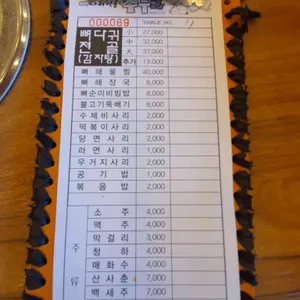 000089 TABLE NO.
뼈다귀 小 27,000
전골 中 32,000
(감자탕) 大 37,000
추가 13,000
뼈해물찜 40,000
뼈해장국 8,000
뼈순이비빔밥 8,000
불고기뚝배기 8,000
수제비사리 2,000
떡볶이사리 2,000
당면사리 2,000
라면사리 1,000
우거지사리 2,000
공기밥 1,000
볶음밥 2,000
주류
소주 4,000
맥주 4,000
막걸리 3,000
청하 4,000
매화수 4,000
산사춘 7,000
백세주 7,000